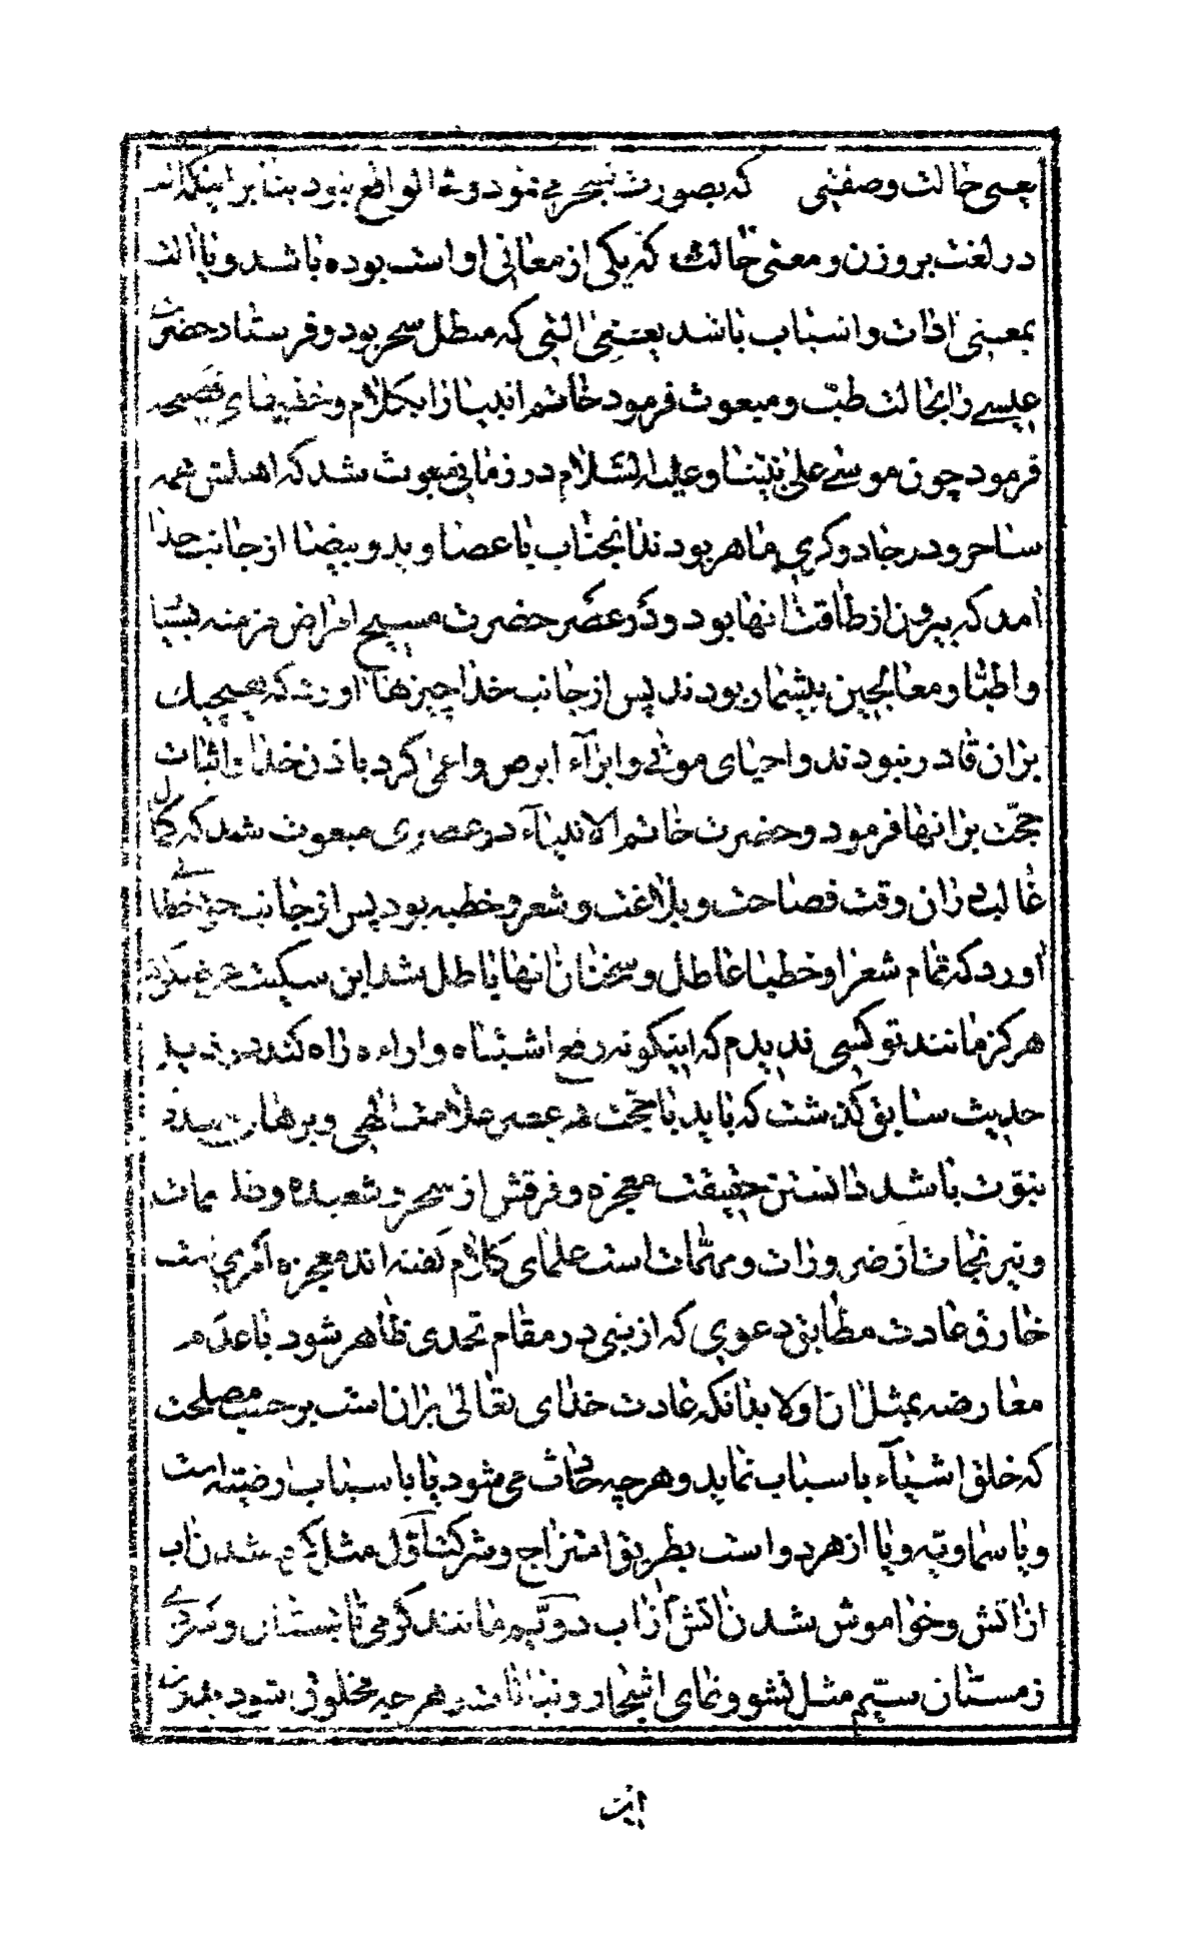 یعنی حالت وصفتی که بصورت سحر می نمود وفی الواقع نبود بنا بر اینکه الت
در لغت بر وزن و معنی حالت که یکی از معانی او است بوده باشد ویا الت
بمعنی ادات و اسباب باشد یعنی التی که مبطل سحر بود و فرستاد حضرت
عیسی را بحالت طب و مبعوث فرمود خاتم انبیا را بکلام و خطبهای فصیحه
فرمود چون موسی علی نبینا و علیه السلام در زمانی مبعوث شد که اهلش همه
ساحر و در جادوگری ماهر بودند انجناب با عصا و ید و بیضا از جانب خدا
امد که بیرون از طاقت انها بود و در عصر حضرت مسیح امراض مزمنه بسیا
واطبا و معالجین بیشمار بودند پس از جانب خدا چیزها اورد که هیچیک
بران قادر نبودند و احیای موتی و ابراء ابرص و اعمی کرد باذن خدا و اثبات
حجت بر انها فرمود و حضرت خاتم الانبیاء در عصری مبعوث شد که کمال
غالب در ان وقت فصاحت و بلاغت و شعر و خطبه بود پس از جانب حق خطابی
اورد که تمام شعرا و خطبا عاطل و سخنان انها باطل شد ابن سکیت عرض کرد
هرگز مانند تو کسی ندیدم که اینگونه رفع اشتباه و اراءه راه کند
حدیث سابق گذشت که باید با حجت هر عصر علامت الهی و برهان
نبوت باشد دانستن حقیقت معجزه و فرقش از سحر و شعبده و طلسمات
و نیرنجات از ضرورات و مهمات است علمای کلام گفته اند معجزه امریست
خارق عادت مطابق دعوی که از نبی در مقام تحدی ظاهر شود با عدم
معارضه بمثل ان اولا بدانکه عادت خدای تعالی بران است بر حسب مصلحت
که خلق اشیاء باسباب نماید و هرچه حادث می شود یا باسباب ارضیه است
و یا سماویه و یا از هر دو است بطریق امتزاج و شرکت اول مثل گرم شدن اب
از اتش و خواموش شدن اتش از اب دویم مانند گرمی تابستان و سردی
زمستان سیم مثل نشو و نمای اشجار و نباتات و هر چه مخلوق شود بقدرت
این